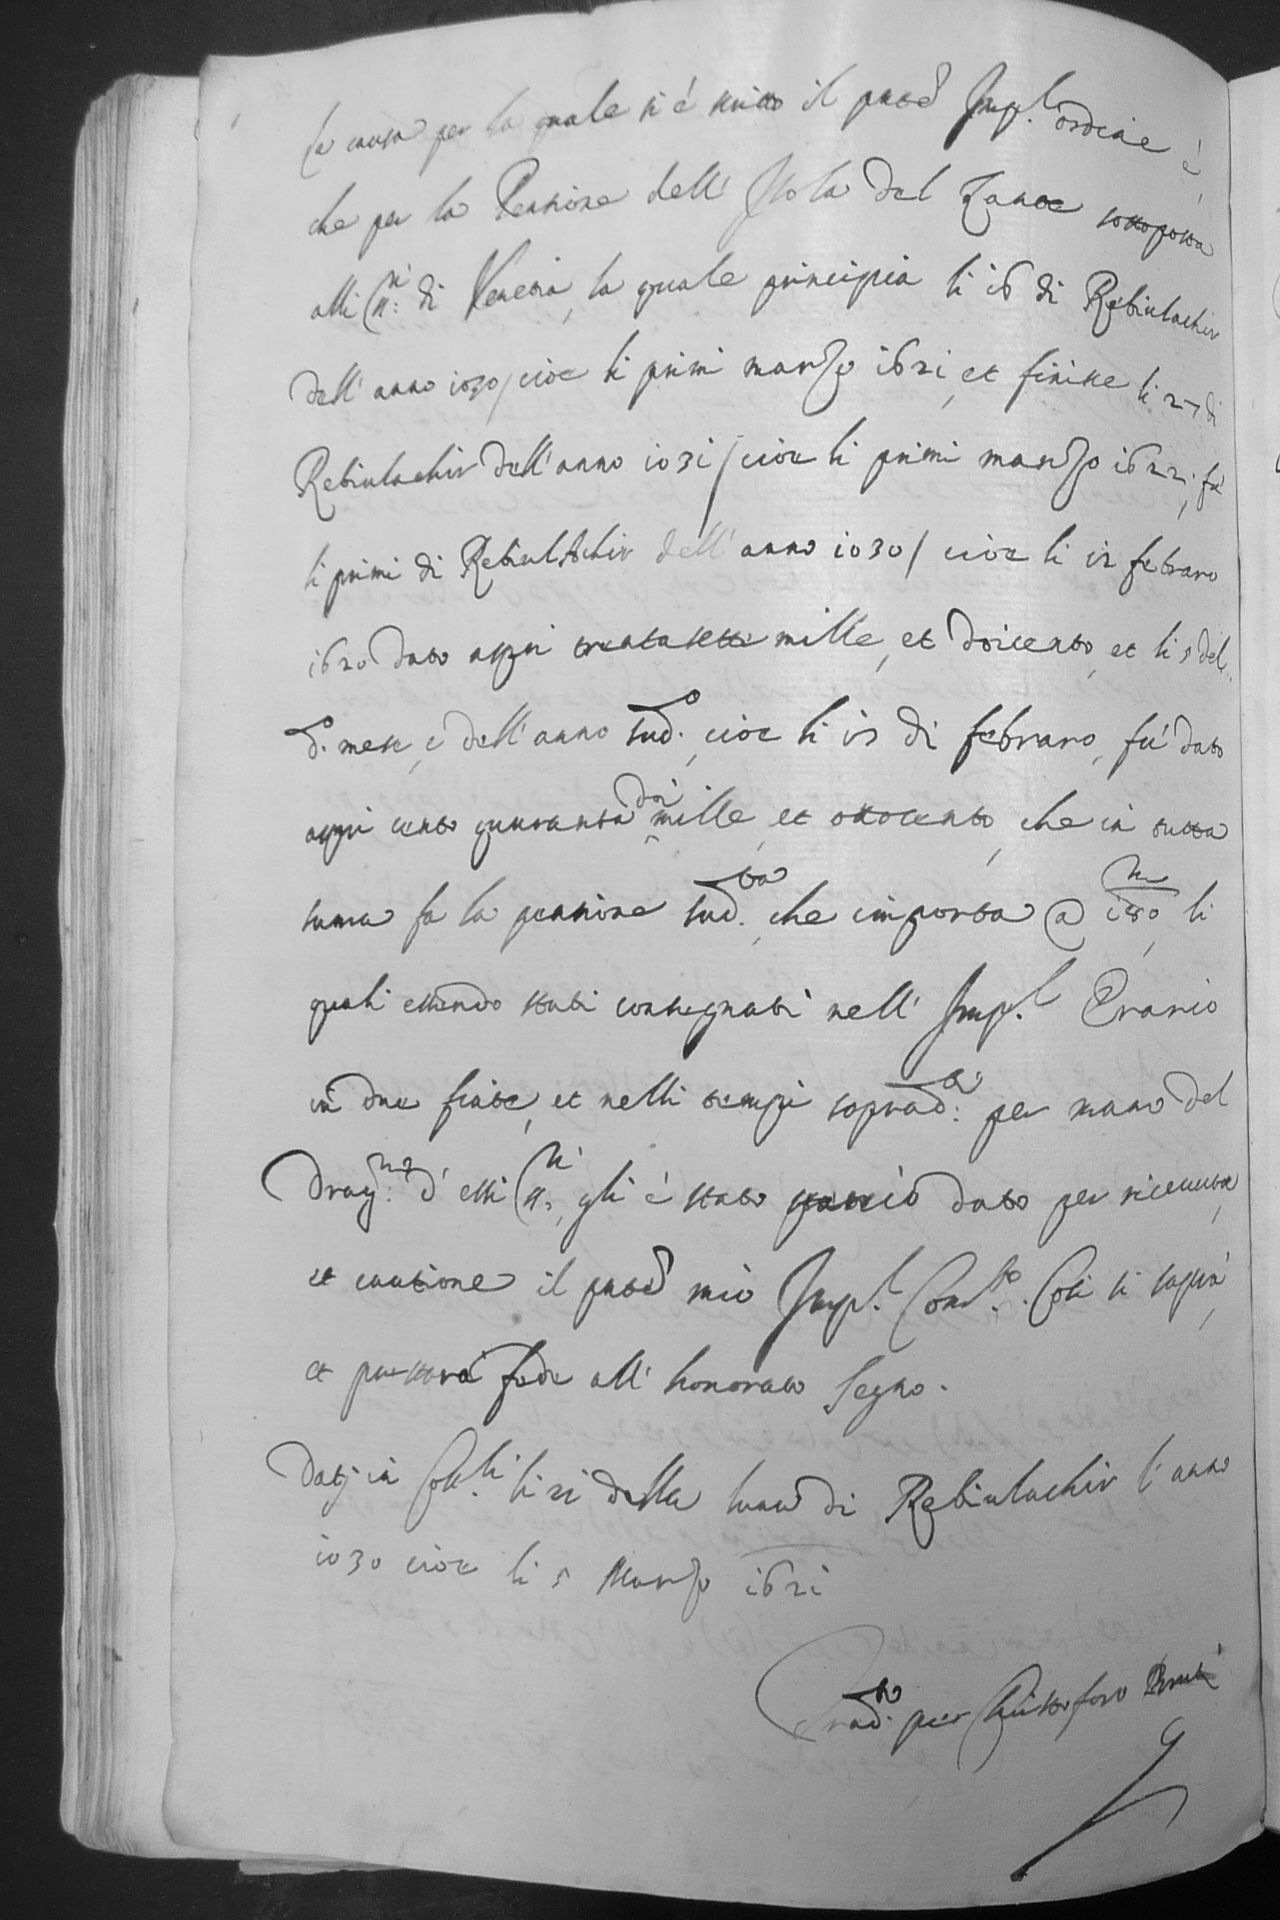 La causa per la quale si è scritto il pntẽ Imp.l ordine è,
che per la Pensione dell' Isola del Zante sottoposta
alli SS.ri di Venetia, la quale principia li 16 di Rebiulachir
dell' anno 1030/ cioè li primi marzo 1621, et finisse li 27 di
Rebiulachir dell' anno 1031/ cioè li primi marzo 1622, fu
li primi di Rebiul Achir dell' anno 1030/ cioè li 12 febraro
1620 dato aspri trentasette mille, et doicento, et li 5 del
d.o mese, e dell' anno sud.o, cioè li 17 di febraro, fu dato
aspri cento quaranta doi mille, et ottocento, che in tutta
suma fa la pensione sud.ta, che importa @ 180 m, li
quali essendo stati consegnati nell' Imp.l Erario
in due fiate, et nelli tempi soprad.ti per mano del
Drag.no d' essi SS.ri, gli è stato perciò dato per riceuuta,
et cautione il pntẽ mio Imp.l Com.to. Così si saprà,
et presterà fede all' honorato Segno.
Datj in Con.li li 21 della luna di Rebiulachir l' anno
1030 cioè li 5 Marzo 1621
Trad.to per Christoforo Bruti